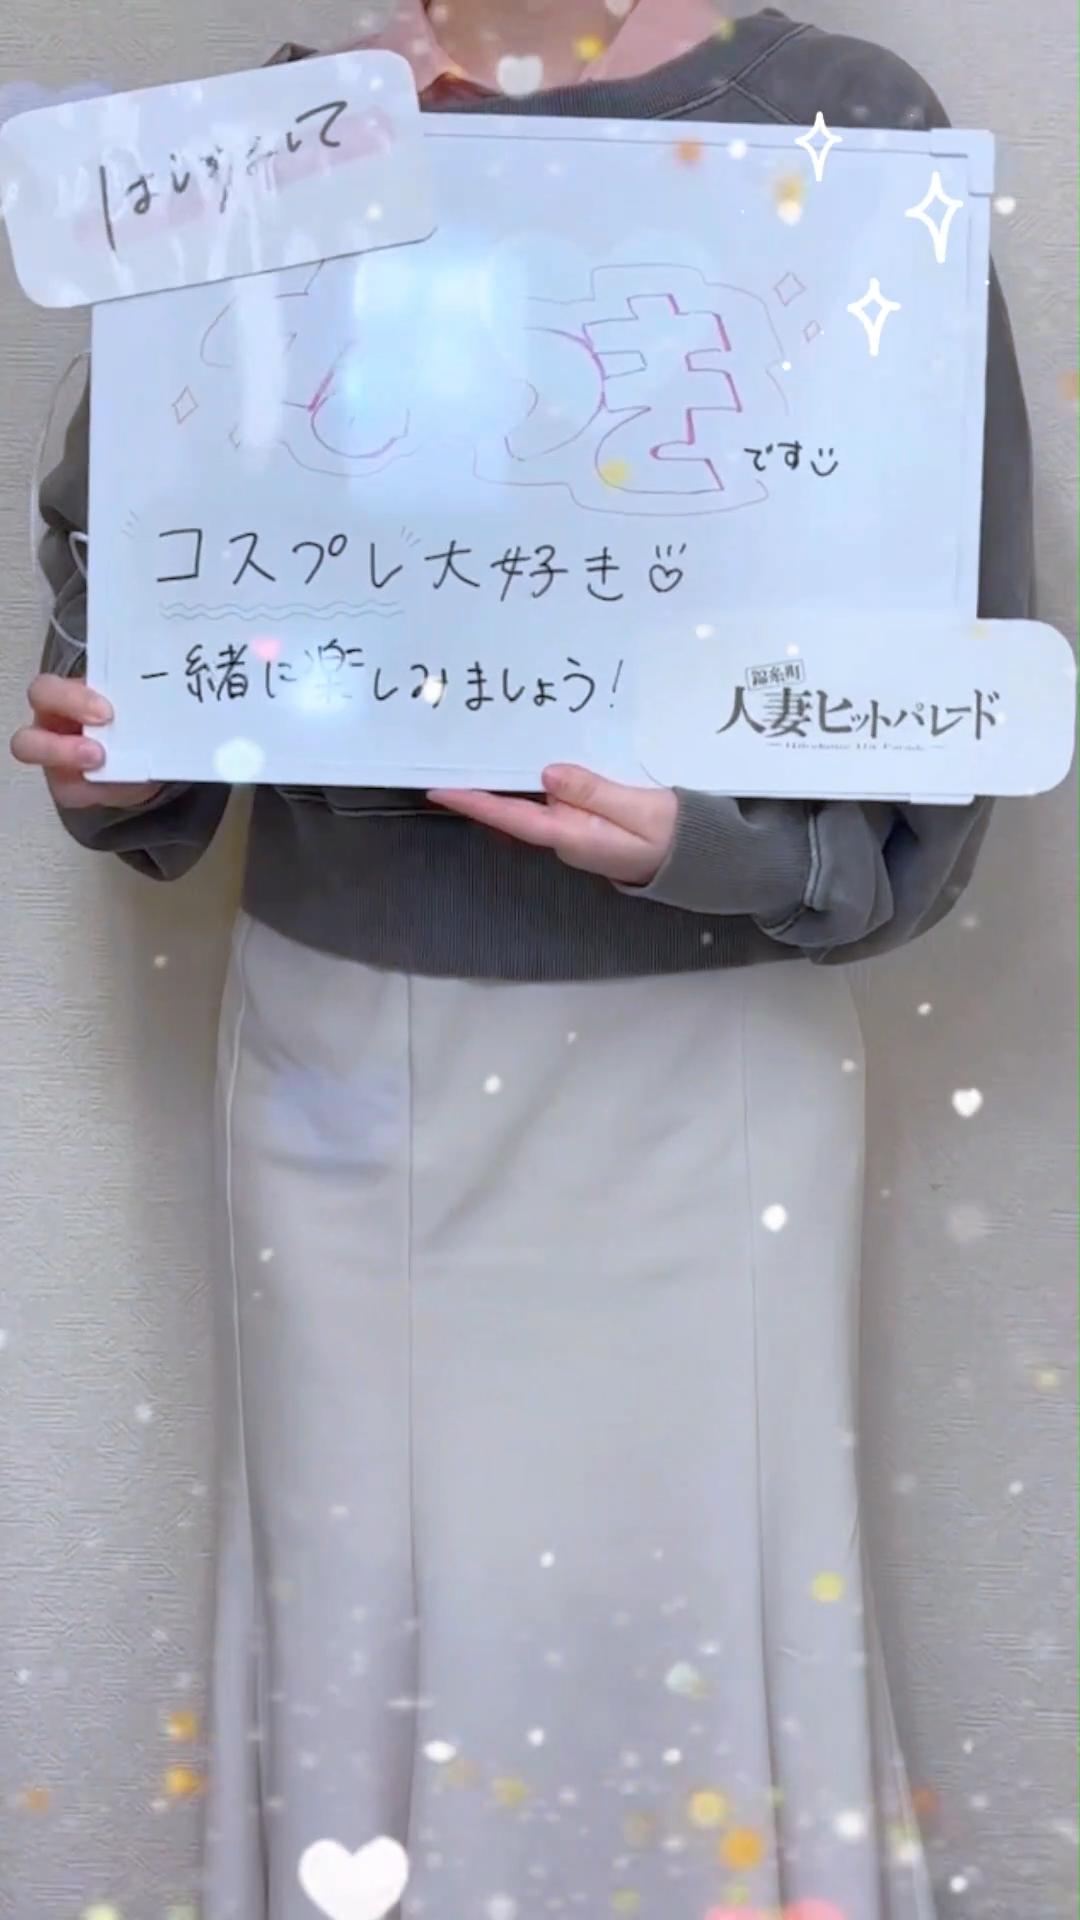 はじめまして
です
コスプレ大好き
一緒に楽しみましょう!
錦糸町
人妻ヒットパレード